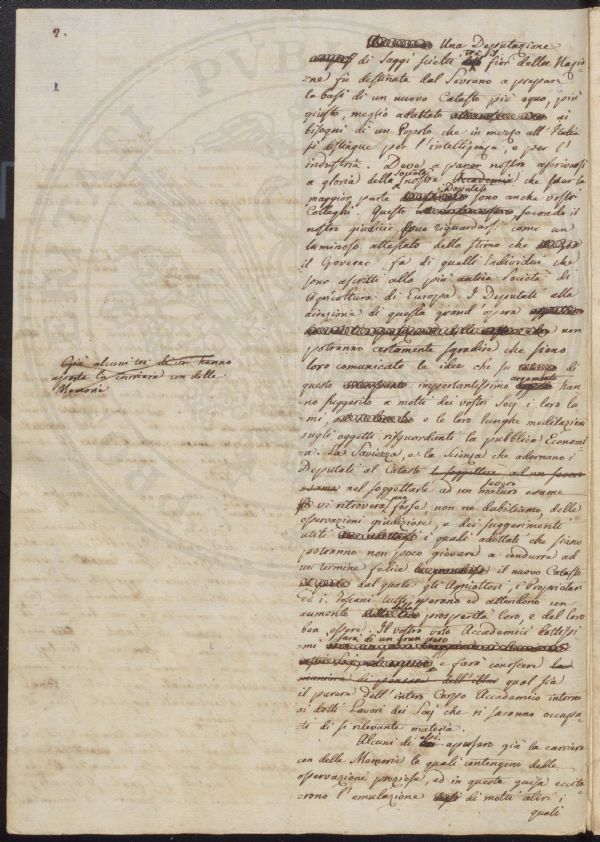 2.
Una Deputazione
di Saggi scelti tra i fiori della Nazio
=ne fu destinata dal Sovrano a preparar
le basi di un nuovo Catasto più equo, più
giusto, meglio adattato ai
bisogni di un Popolo che in mezzo all'Italia
si distingue per l'intelligenza, e per l'
industria. Deve a parer nostro ascriversi
a gloria della nostra Società Accademia che la
maggior parte i Deputati sono anche vostri
Colleghi. Questo secondo il
nostro giudicio riguardarsi come un
luminoso attestato della stima che
il Governo fa di quelli Individui che
sono ascritti alla più antica Società di
Agricoltura di Europa. I Deputati alla
direzione di questa grand opera
non
potranno certamente sgradire che siano
loro comunicate le idee che su di
questo importantissimo argomento han
=no suggerito a molti dei vostri Socj i loro lu
mi, e le loro lunghe meditazioni
sugli oggetti risguardanti la pubblica Economi
=a. La Saviezza, e la Scienza che adornano i
Deputati al Catasto e soggettare ad un severo
esame nel soggettarle ad un maturo severo esame
vi ritroverà forse, non ne dubitiamo, delle
osservazioni giudiziose, e dei suggerimenti
utili i quali adottati che siano
potranno non poco giovare a condurre ad
un termine felice il nuovo Catasto
dal quale gli Agricoltori, i Proprietarj
ed i Toscani tutti sperano ed attendono un
aumento prosperità loro, e del loro
ben essere. Il vostro voto Accademici dottissi
=mi sarà di un gran peso
e farà conoscere la
maniera di pensare dell'altro qual sia
il parere dell'intero Corpo Accademico intorno
ai dotti Lavori dei Socj che si saranno occupa
ti di sì rilevante materia.
Alcuni di essi apersero già la carriera
con delle Memorie le quali contengono delle
osservazioni preziose, ed in questa guisa eccita
=rono l'emulazione di molti altri i
quali
Già alcuni di voi hanno
aperta la carriera con delle
Memorie